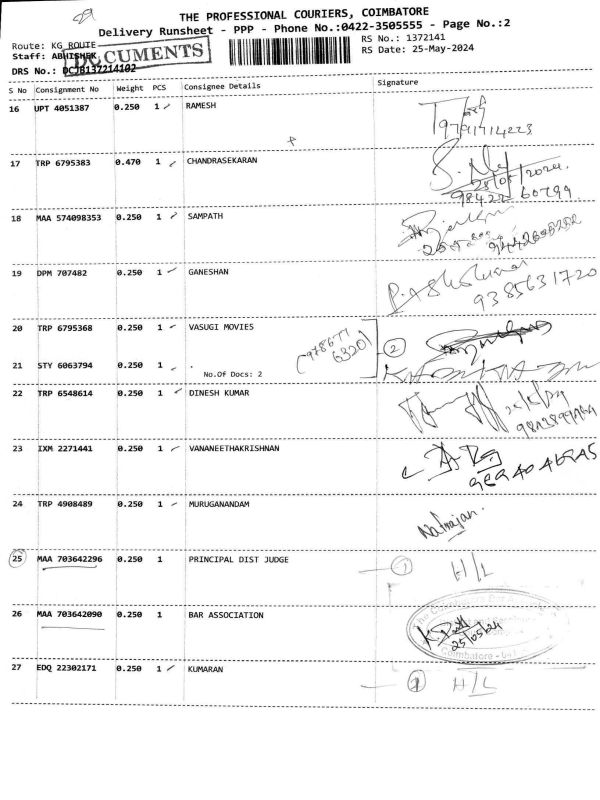 THE PROFESSIONAL COURIERS, COIMBATORE
Delivery Runsheet - PPP - Phone No.:0422-3505555 - Page No.:2
Route: KG ROUTE
RS No.: 1372141
Staff: ABHISHEK
DOCUMENTS
RS Date: 25-May-2024
DRS No.: DCJB137214102
S No Consignment No Weight PCS Consignee Details Signature
16 UPT 4051387 0.250 1 RAMESH
9791714223
17 TRP 6795383 0.470 1 CHANDRASEKARAN
25/05/2024
98422 60799
18 MAA 574098353 0.250 1 SAMPATH
19 DPM 707482 0.250 1 GANESHAN
9385631720
20 TRP 6795368 0.250 1 VASUGI MOVIES
2
21 STY 6063794 0.250 1 .
No.Of Docs: 2
22 TRP 6548614 0.250 1 DINESH KUMAR
23 IXM 2271441 0.250 1 VANANEETHAKRISHNAN
24 TRP 4908489 0.250 1 MURUGANANDAM
Natrajan.
25 MAA 703642296 0.250 1 PRINCIPAL DIST JUDGE
1 H/L
26 MAA 703642090 0.250 1 BAR ASSOCIATION
25/05/24
Coimbatore
27 EDQ 22302171 0.250 1 KUMARAN
1 H/L